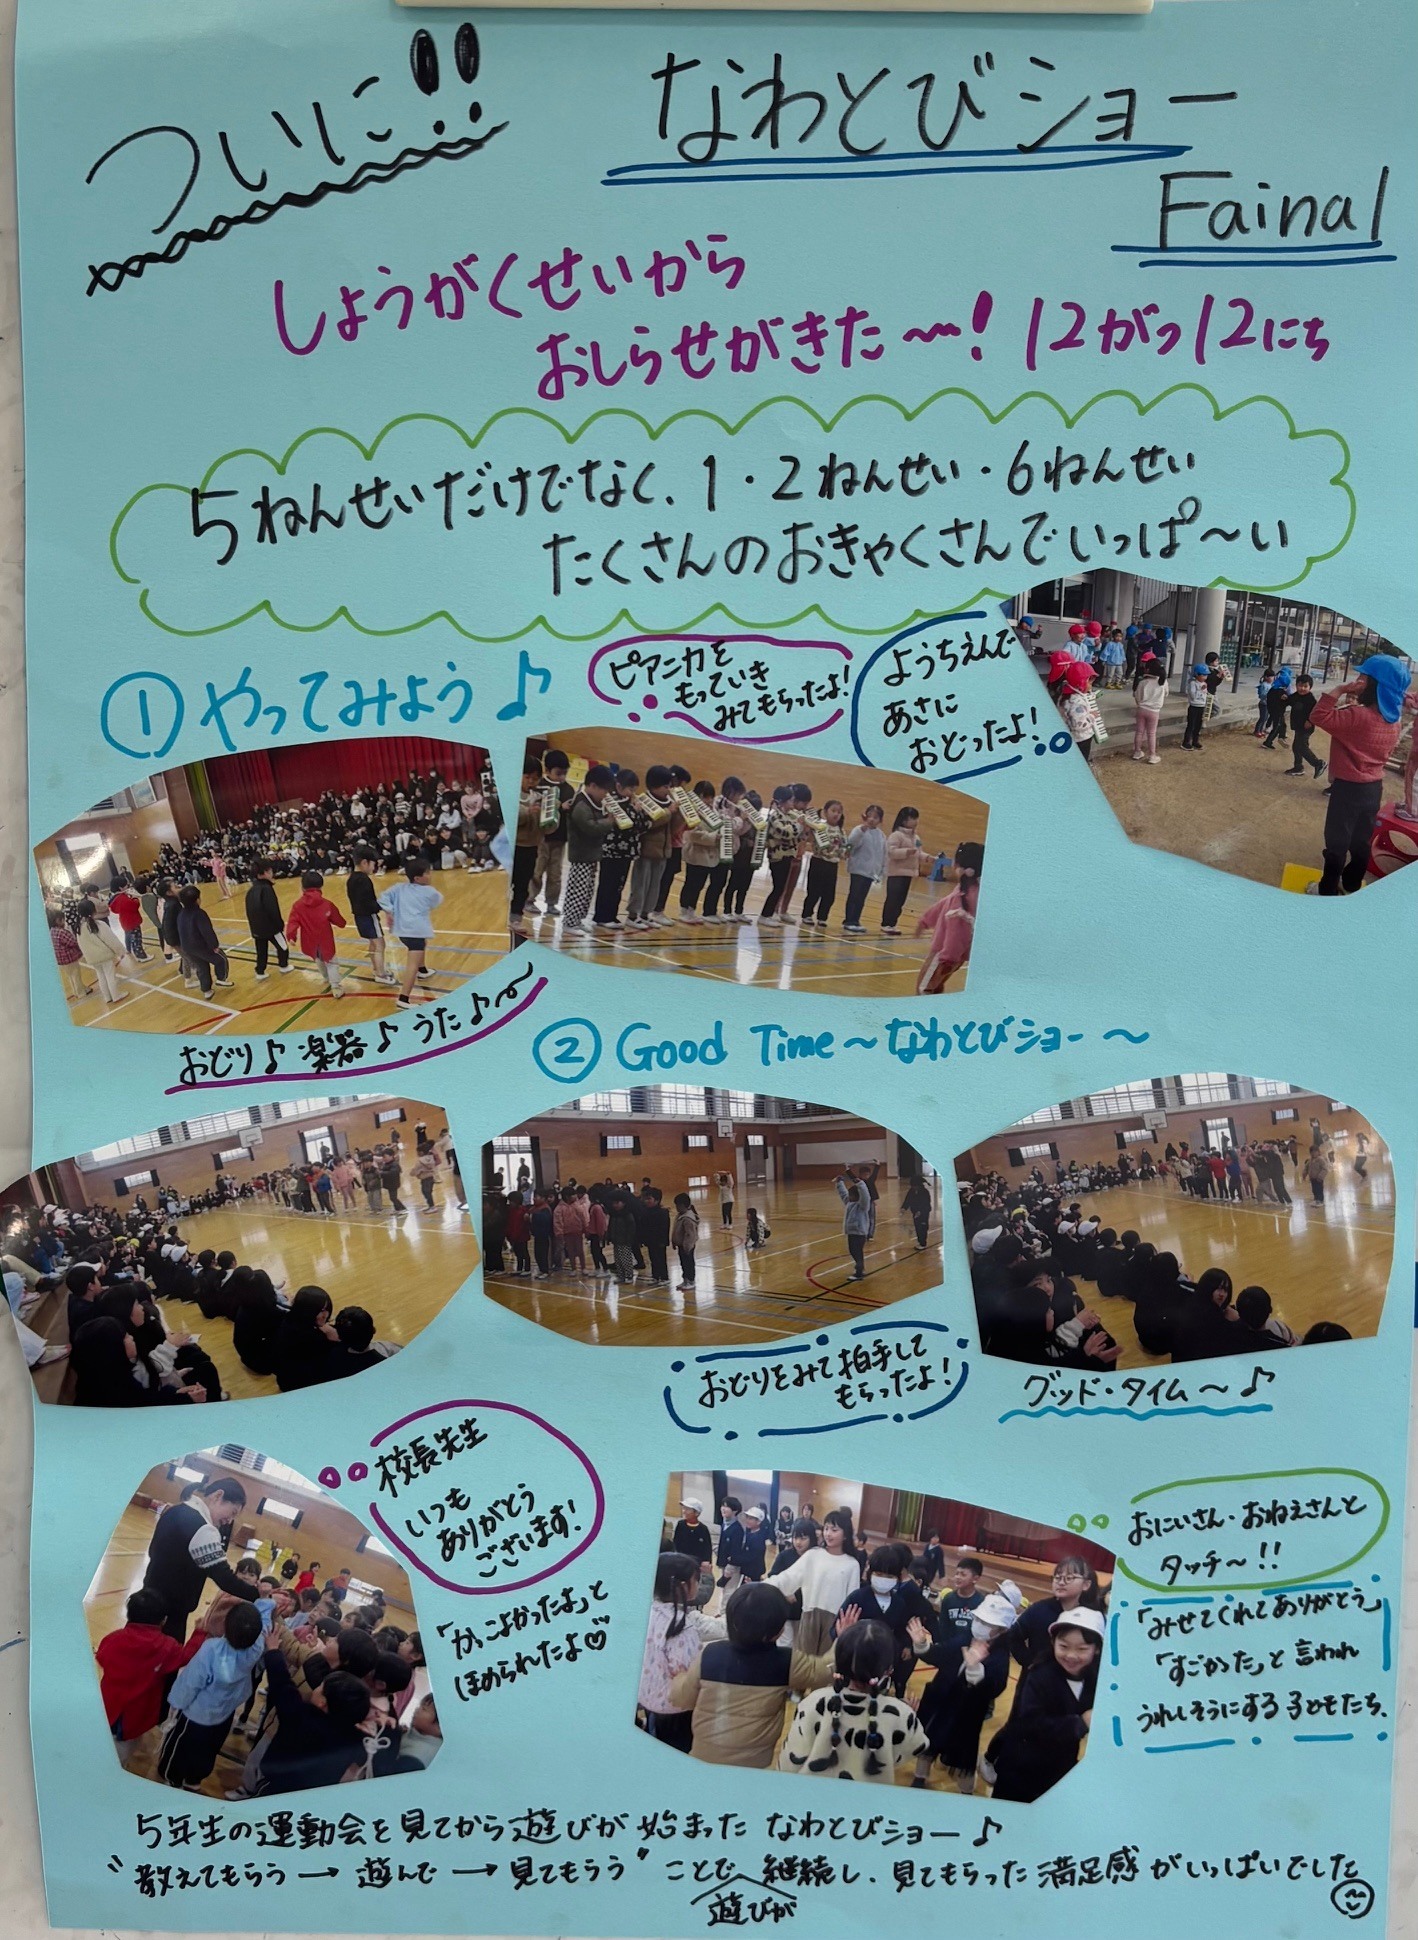 ついに!!
なわとびショー
Fainal
しょうがくせいから
おしらせがきた〜! 12がつ12にち
5ねんせいだけでなく、1・2ねんせい・6ねんせい
たくさんのおきゃくさんでいっぱ〜い
① やってみよう♪
ピアニカを
もっていき
みてもらったよ!
ようちえんで
あさに
おどったよ!
おどり♪ 楽器♪ うた♪〜
② Good Time〜なわとびショー〜
おどりをみて拍手して
もらったよ!
グッド・タイム〜♪
校長先生
いつも
ありがとう
ございます!
「かっこよかったよ」と
ほめられたよ♡
おにいさん・おねえさんと
タッチ〜!!
「みせてくれてありがとう」
「すごかった」と言われ
うれしそうにする子どもたち。
5年生の運動会を見てから遊びが始まった なわとびショー♪
“教えてもらう → 遊んで → 見てもらう” ことで 継続し、見てもらった満足感がいっぱいでした
遊びが